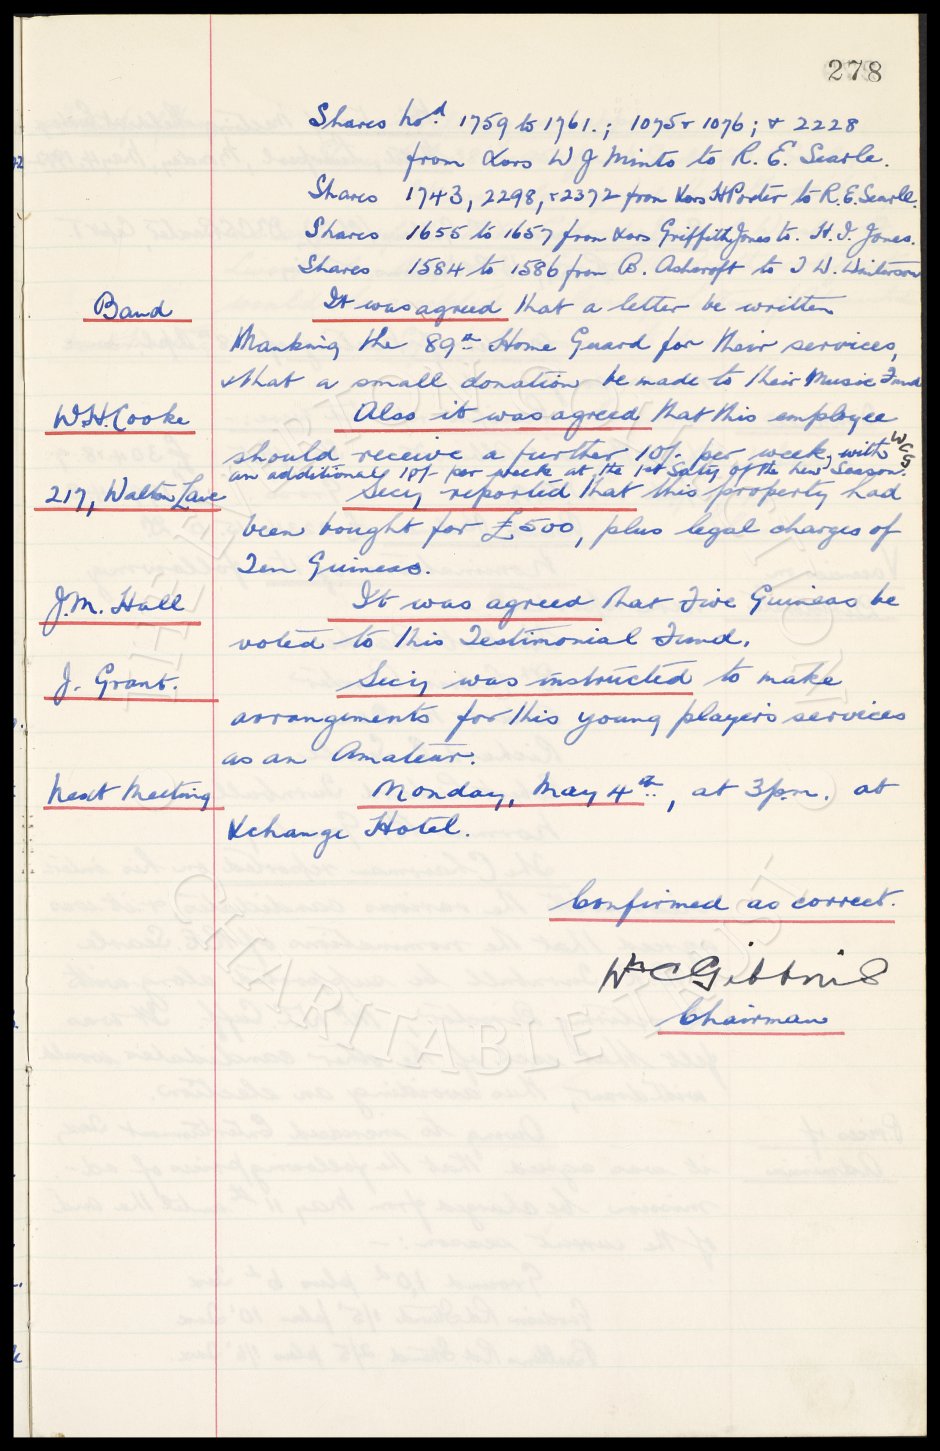 278
Shares No.d 1759 to 1761.; 1075 & 1076; & 2228
from Xors W J Minto to R. E. Searle.
Shares 1743, 2298, & 2372 from Xors H Porter to R. E. Searle.
Shares 1655 to 1657 from Xors Griffith Jones to H. I. Jones.
Shares 1584 to 1586 from B. Ashcroft to J W. Winterson
Band It was agreed that a letter be written
thanking the 89th Home Guard for their services,
& that a small donation be made to their Music Fund
W.H. Cooke Also it was agreed that this employee
should receive a further 10/- per week, with WCG
an additional 10/- per week at the 1st Satdy of the new Season.
217, Walton Lane Secy reported that this property had
been bought for £500, plus legal charges of
Ten Guineas.
J.M. Hall It was agreed that Five Guineas be
voted to this Testimonial Fund.
J. Grant. Secy was instructed to make
arrangements for this young player's services
as an Amateur.
Next Meeting Monday, May 4th, at 3 p.m. at
Xchange Hotel.
Confirmed as correct.
Wm C Gibbins
Chairman
THE EVERTON COLLECTION
CHARITABLE TRUST